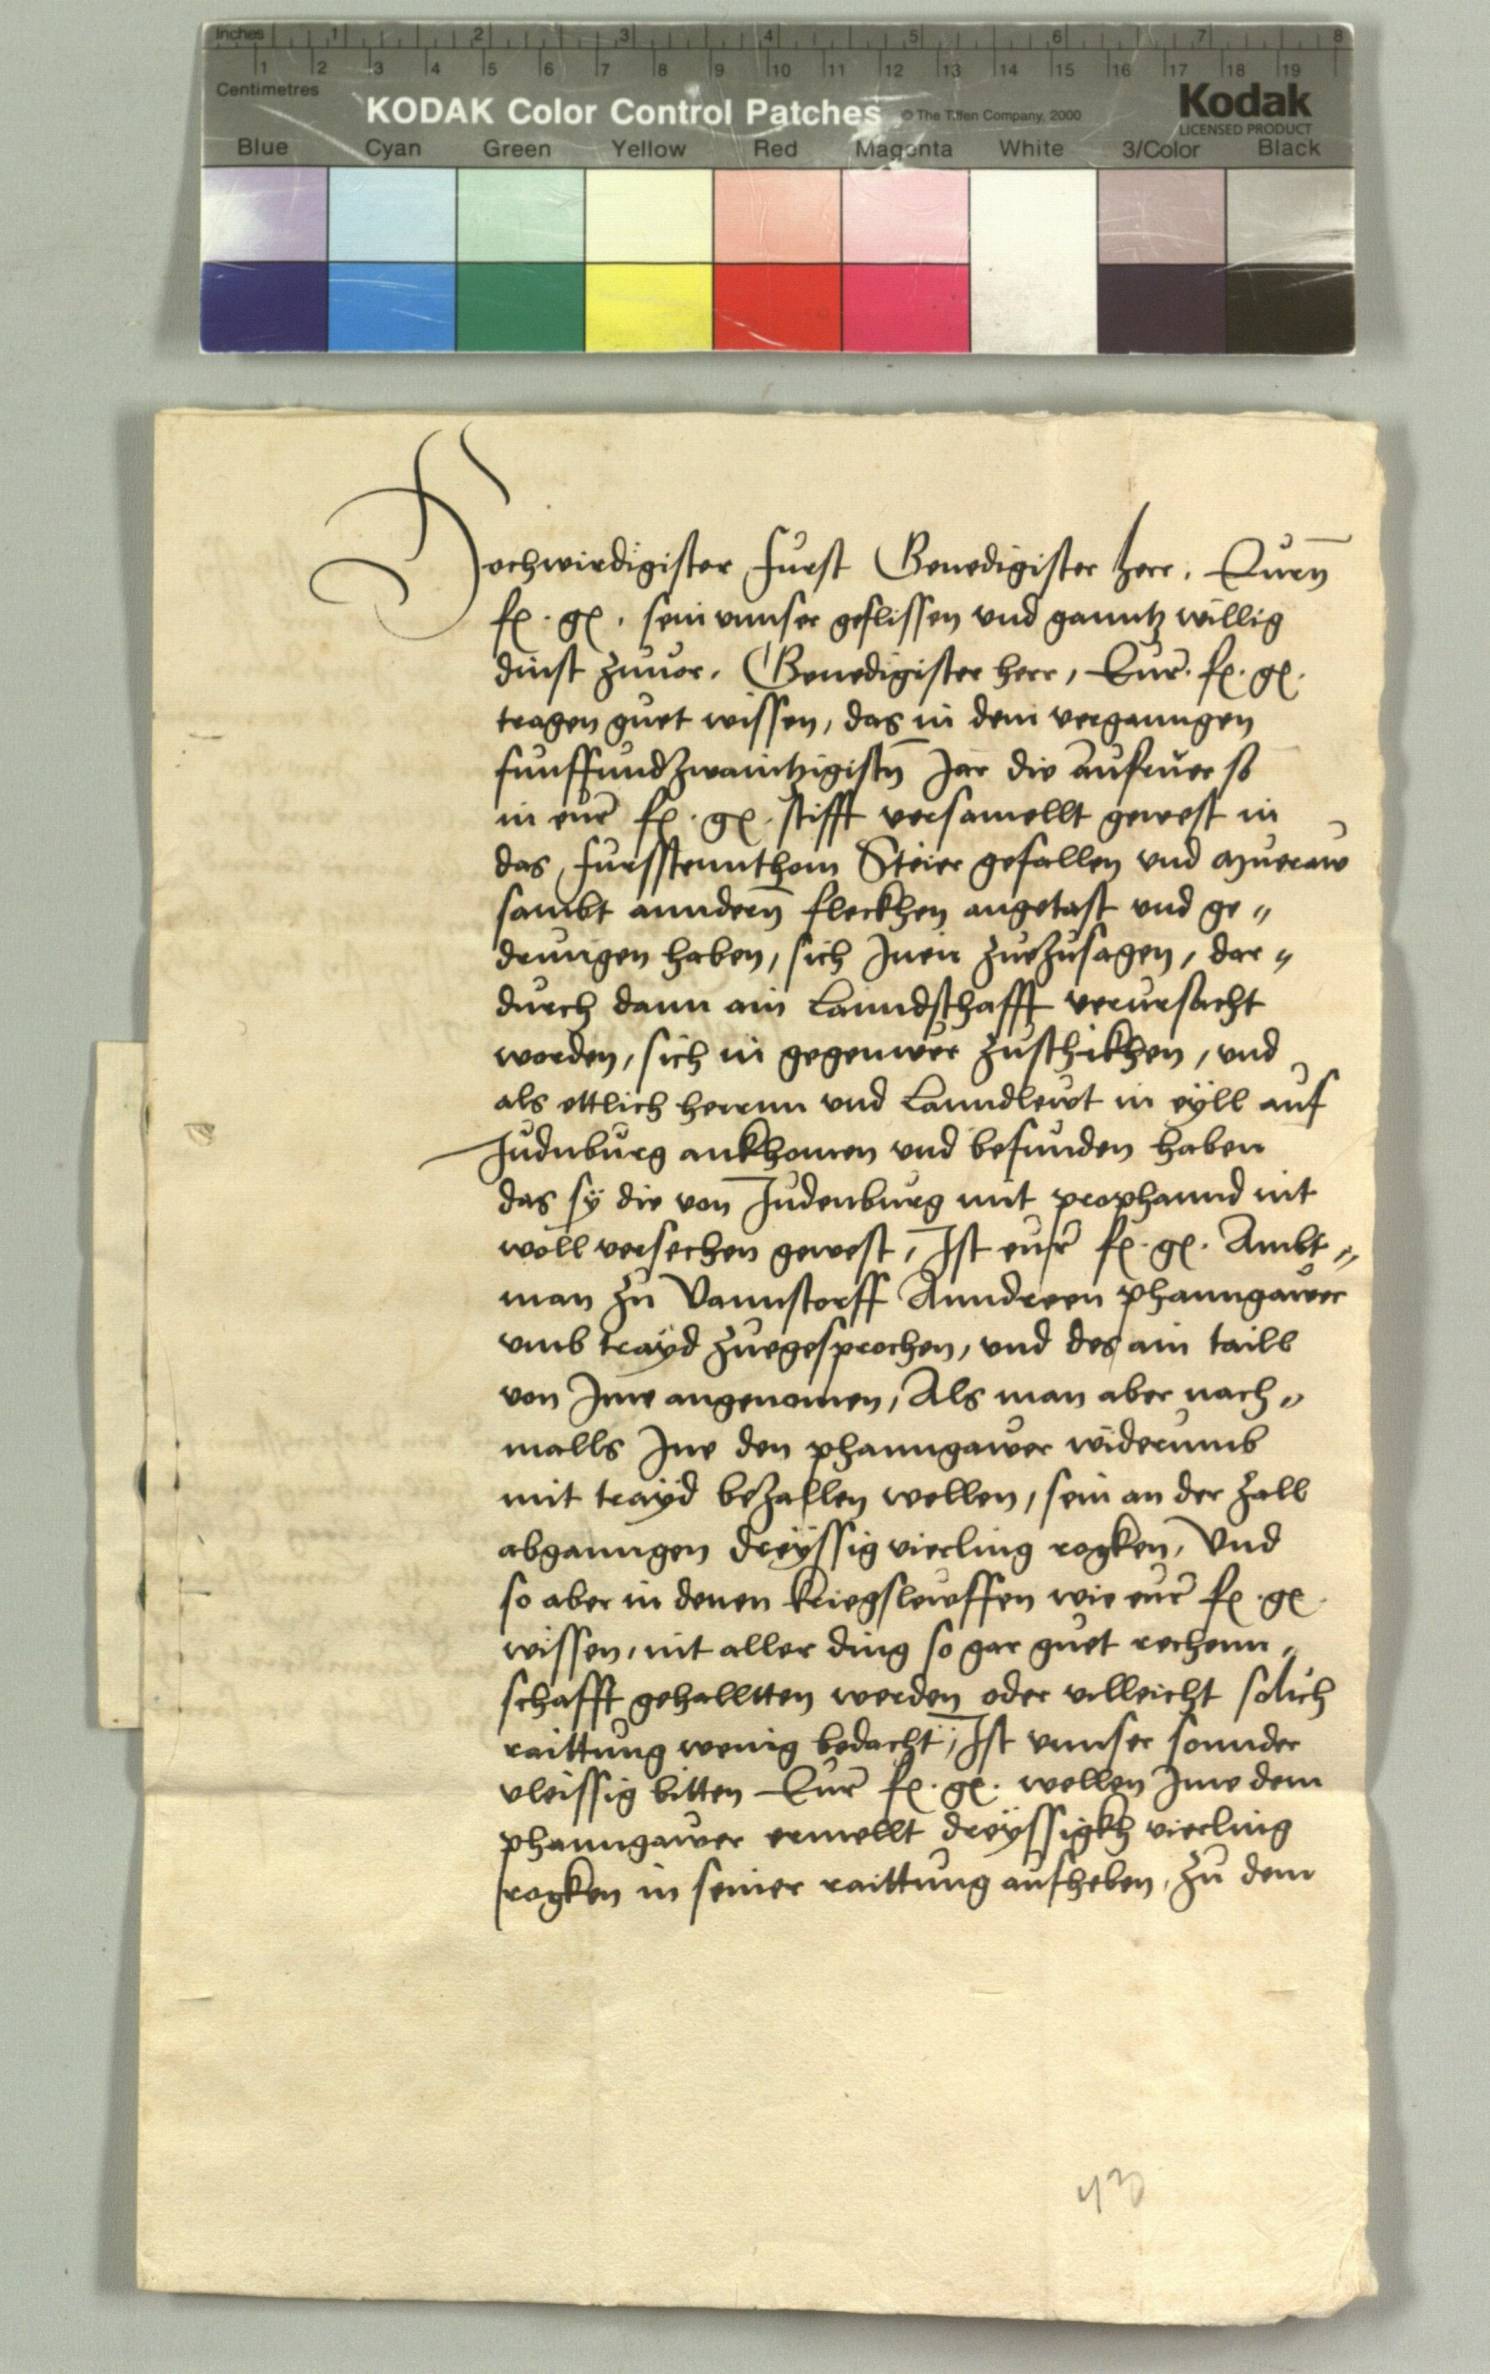 Inches 1 2 3 4 5 6 7 8
1 2 3 4 5 6 7 8 9 10 11 12 13 14 15 16 17 18 19
Centimetres
KODAK Color Control Patches © The Tiffen Company, 2000 Kodak
LICENSED PRODUCT
Blue Cyan Green Yellow Red Magenta White 3/Color Black
Hochwirdigister Furst Genedigister herr. Eurn̄
fl. gl. sein vnnser geflissen vnd ganntz willig
dinst zuuor. Genedigister herr, Eur. fl. gl.
tragen guet wissen, das in dem verganngen
funffundzwaintzigistn̄ Jar die aufruer so
in eur fl. gl. stifft versamellt gewest in
das fursstennthom Steier gefallen vnd Mueraw
sambt anndern̄ fleckhen angetast vnd ge„
drungen haben, sich Inen zuezusagen, dar„
durch dann ain Lanndschafft verursacht
worden, sich in gegenwer zuschikhen, vnd
als ettlich herrnn vnd Lanndlewt in eyll auf
Judnburg ankhomen vnd befunden haben
das sy die von Judenburg mit prophannd nit
woll versechen gewest, Ist eur fl. gl. Ambt„
man zu Vannstorff Anndreen phanngawer
vmb trayd zuegesprochen, vnd des ain taill
von Ime angenomen, Als man aber nach„
malls Ine den phanngawer widerumb
mit trayd bezallen wellen, sein an der zall
abganngen dreyssig vierling rogken, Vnd
so aber in denen kriegslewffen wie eur fl. gl.
wissen, nit aller ding so gar guet rechenn„
schafft gehalltten werden oder villeicht solich
raittung wenig bedacht, Ist vnnser sonnder
vleissig bitten Eur fl. gl. wellen Ime dem
phanngawer ermellt dreyssigkh vierling
rogken in seiner raittung aufheben, zu dem
43